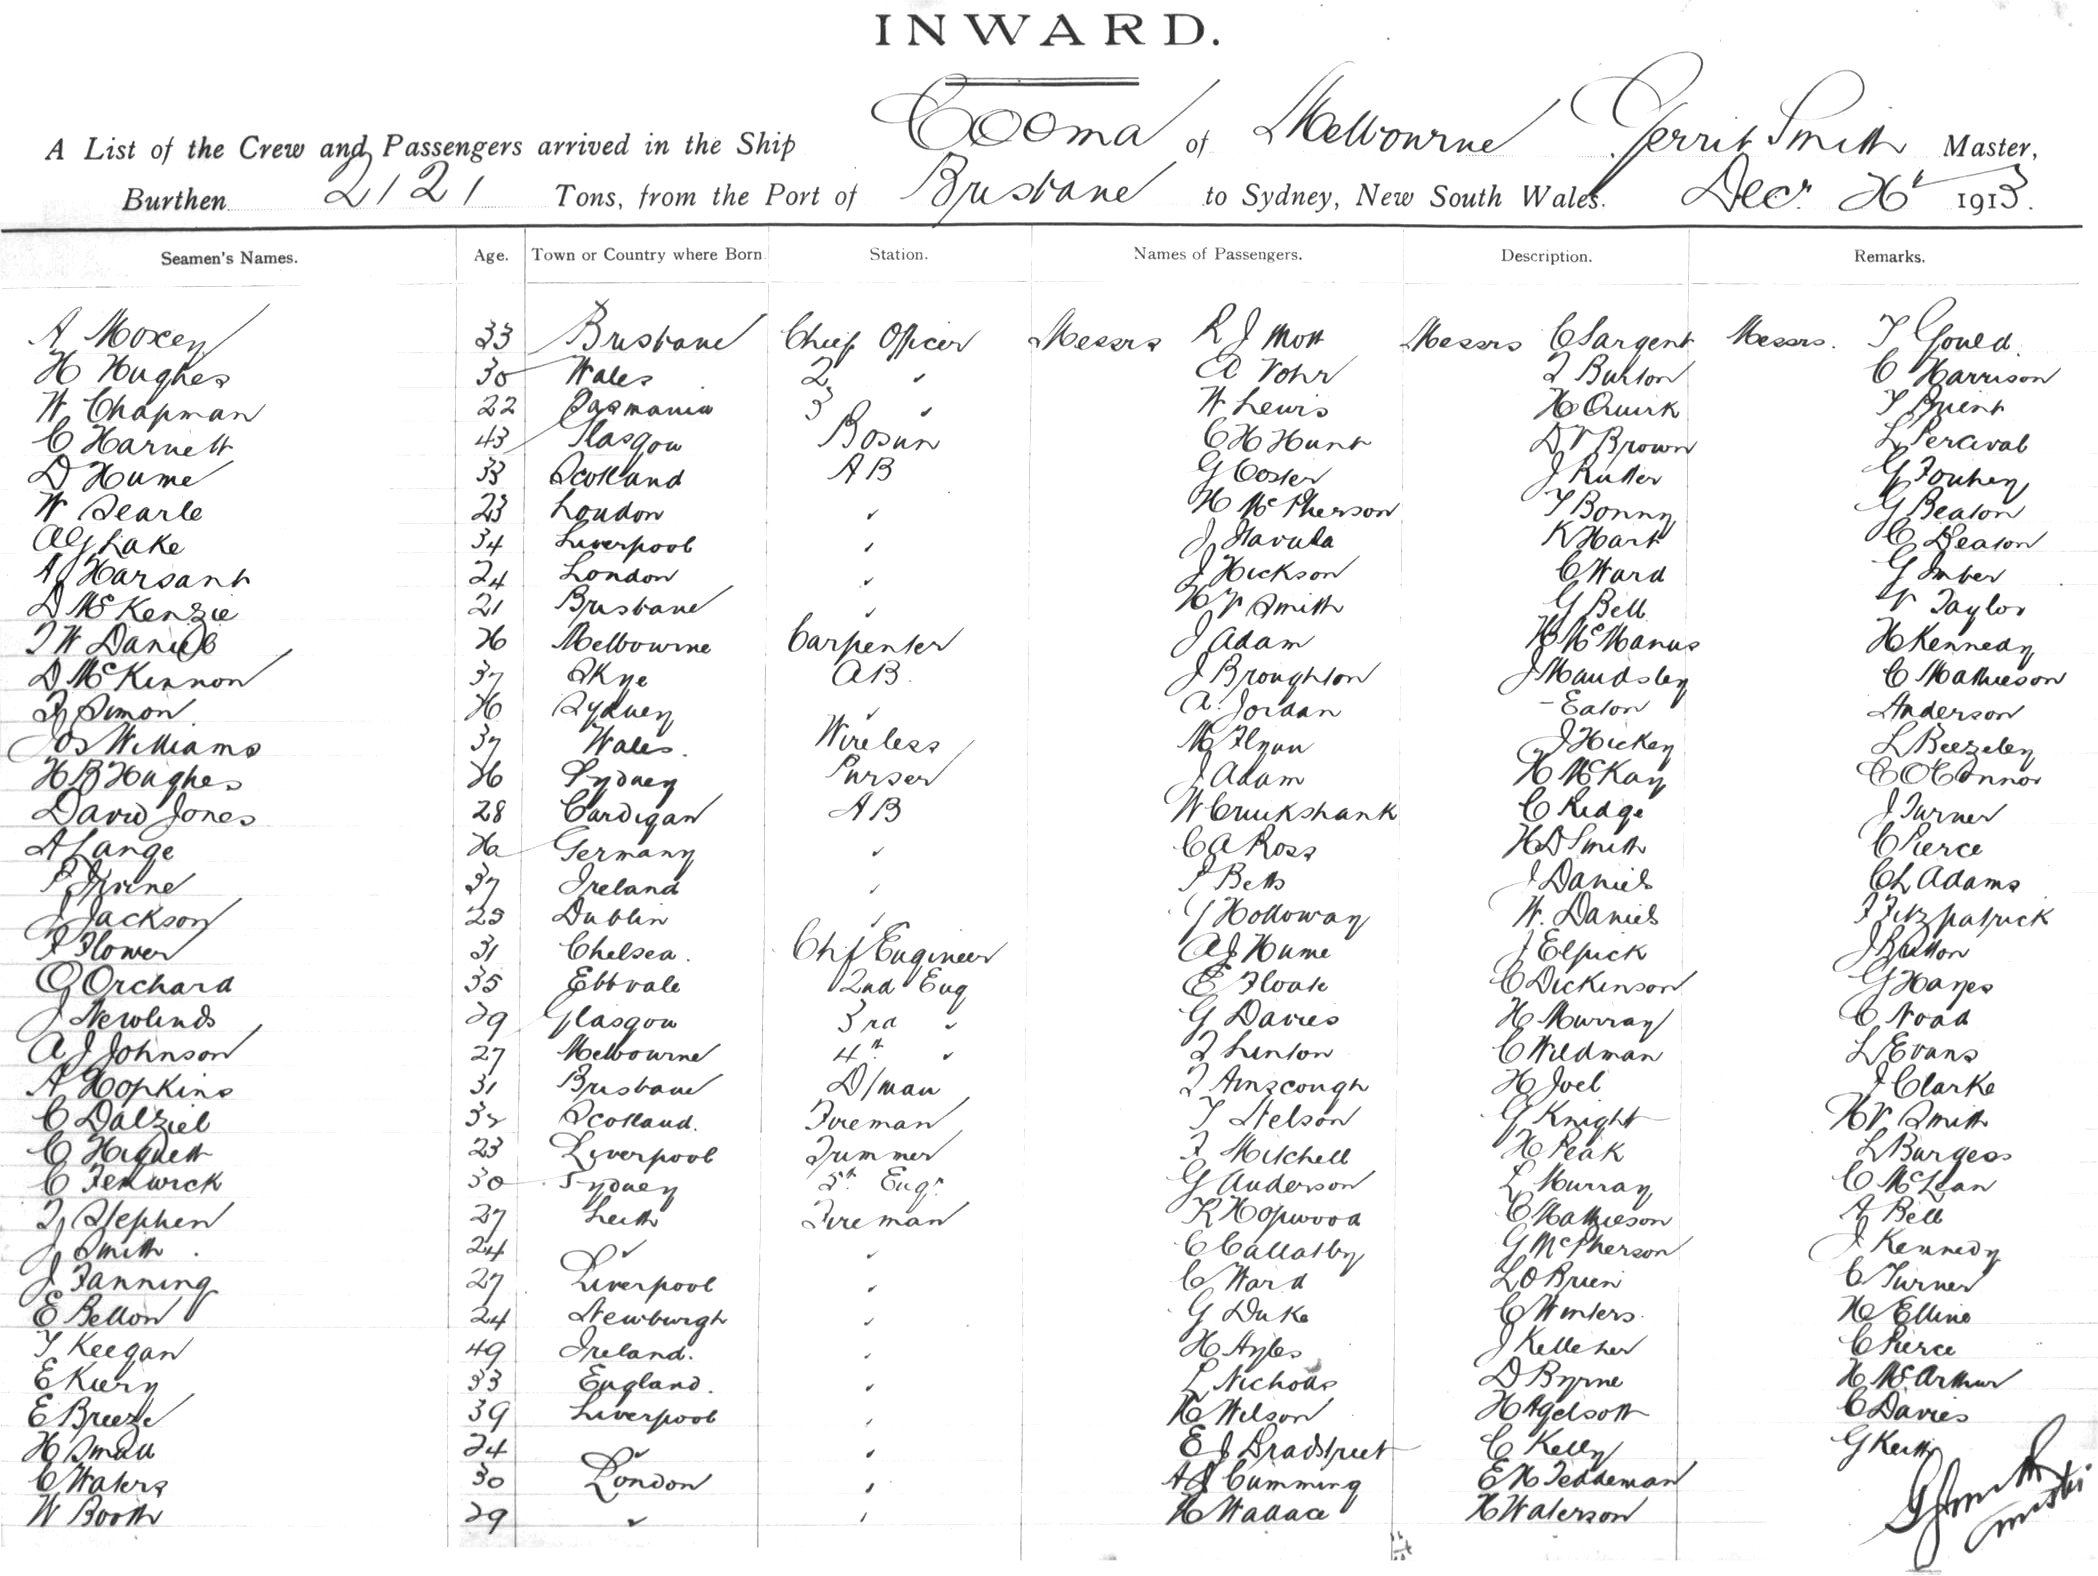 INWARD.
A List of the Crew and Passengers arrived in the Ship Cooma of Melbourne Gerrit Smith Master,
Burthen 2121 Tons, from the Port of Brisbane to Sydney, New South Wales. Decr 26th 1913.
Seamen's Names. Age. Town or Country where Born Station. Names of Passengers. Description. Remarks.
A Moxey 33 Brisbane Chief Officer Messrs R J Mott Messrs C Sargent Messrs. T Gould.
H Hughes 30 Wales 2 " A Vohr F Burton C Harrison
W Chapman 22 Tasmania 3 " W Lewis H Quirk T
C Harnett 43 Glasgow Bosun C H Hunt D V Brown L Percival
D Hume 33 Scotland A B G Coster J Rutter G
W Searle 23 London " H McPherson T Bonny G Beaton
A G Lake 34 Liverpool " J K Hart C Deaton
A J Harsant 24 London " J Hickson C Ward G Imber
D McKenzie 21 Brisbane " H V Smith G Bell V Taylor
T W Daniels 26 Melbourne Carpenter J Adam H McManus H Kennedy
D McKinnon 37 Skye A B. J Broughton J Maudsley C Mathieson
F Simon 26 Sydney " A. Jordan - Eaton Anderson
Jos Williams 37 Wales. Wireless M Flynn J Hickey L Beezeley
H B Hughes 26 Sydney Purser J Adam H McKay C O'Connor
David Jones 28 Cardigan A B W Cruikshank C Ridge J Turner
A Lange Germany " C A Ross H D Smith C Pierce
P Irvine 37 Ireland " P Betts J Daniels C L Adams
J Jackson 25 Dublin " G Holloway W. Daniels F Fitzpatrick
F Flower 31 Chelsea. Chif Engineer A J Hume J Elpick J Button
G Orchard 35 Ebbvale 2nd Eng E Floate C Dickinson G Hayes
J Newlinds 29 Glasgow 3rd " G Davies H Murray C Noad
A J Johnson 27 Melbourne 4th " F Linton C Wildman L Evans
A Hopkins 31 Brisbane D/man F Ainscough H Joel J Clarke
C Dalziel 32 Scotland. Fireman T Nelson G Knight H V Smith
C Hignett 23 Liverpool Trimmer F Mitchell H Peak L Burgess
C Fenwick 30 Sydney 5th Engr G Anderson L Murray C McLean
F Stephen 27 Leith Fireman R Hopwood C Mathieson A Bell
J Smith. 24 " " C Callatby G McPherson J Kennedy
J Fanning 27 Liverpool " C Ward L O'Brien C Turner
E Bellon 24 Newburgh " G Duke C Winters. H Elline
T Keegan 49 Ireland. " H Ayles J Kelleher C Pierce
E Kiery 33 England. " L Nicholls D Byrne H McArthur
E Breeze 39 Liverpool " H Wilson H Agelsott C Davies
H Small 24 " " E J Bradstreet C Kelly G Keith
C Waters 30 London " A J Cumming E H Teddeman
W Booth 29 " " H Wallace H Waterson
G Smith
master